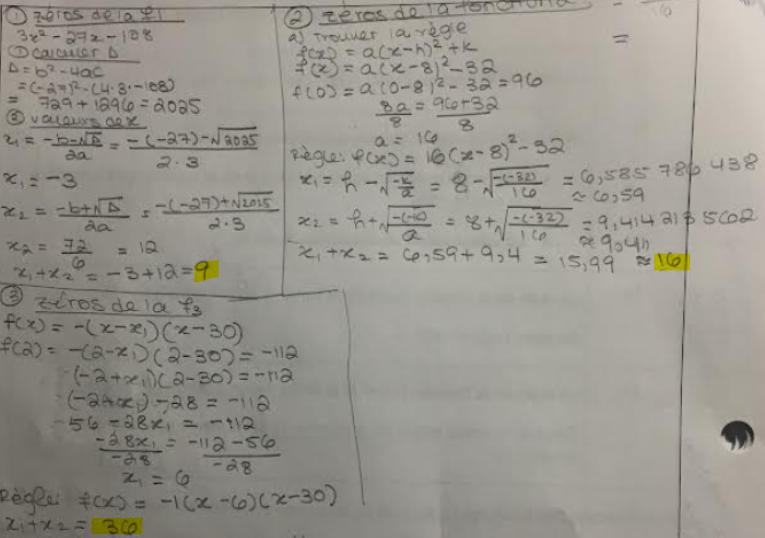 ① zéros de la f1
3x² - 27x - 108
① calculer Δ
Δ = b² - 4ac
= (-27)² - (4·3·-108)
= 729 + 1296 = 2025
② valeurs de x
x₁ = -b-√Δ / 2a = -(-27)-√2025 / 2·3
x₁ = -3
x₂ = -b+√Δ / 2a = -(-27)+√2025 / 2·3
x₂ = 72/6 = 12
x₁+x₂ = -3+12 = 9
② zéros de la fonction
a) Trouver la règle
f(x) = a(x-h)² + k
f(x) = a(x-8)² - 32
f(0) = a(0-8)² - 32 = 96
8a/8 = 96+32/8
a = 16
Règle: f(x) = 16(x-8)² - 32
x₁ = h - √(-k/a) = 8 - √(-(-32)/16) = 6,585 786 438
≈ 6,59
x₂ = h + √(-(-k)/a) = 8 + √(-(-32)/16) = 9,414 213 5602
≈ 9,41
x₁+x₂ = 6,59 + 9,4 = 15,99 ≈ 16
=
③ zéros de la f3
f(x) = -(x-x₁)(x-30)
f(2) = -(2-x₁)(2-30) = -112
(-2+x₁)(2-30) = -112
(-2+x₁)·-28 = -112
56 - 28x₁ = -112
-28x₁/-28 = -112-56/-28
x₁ = 6
Règle: f(x) = -1(x-6)(x-30)
x₁+x₂ = 36